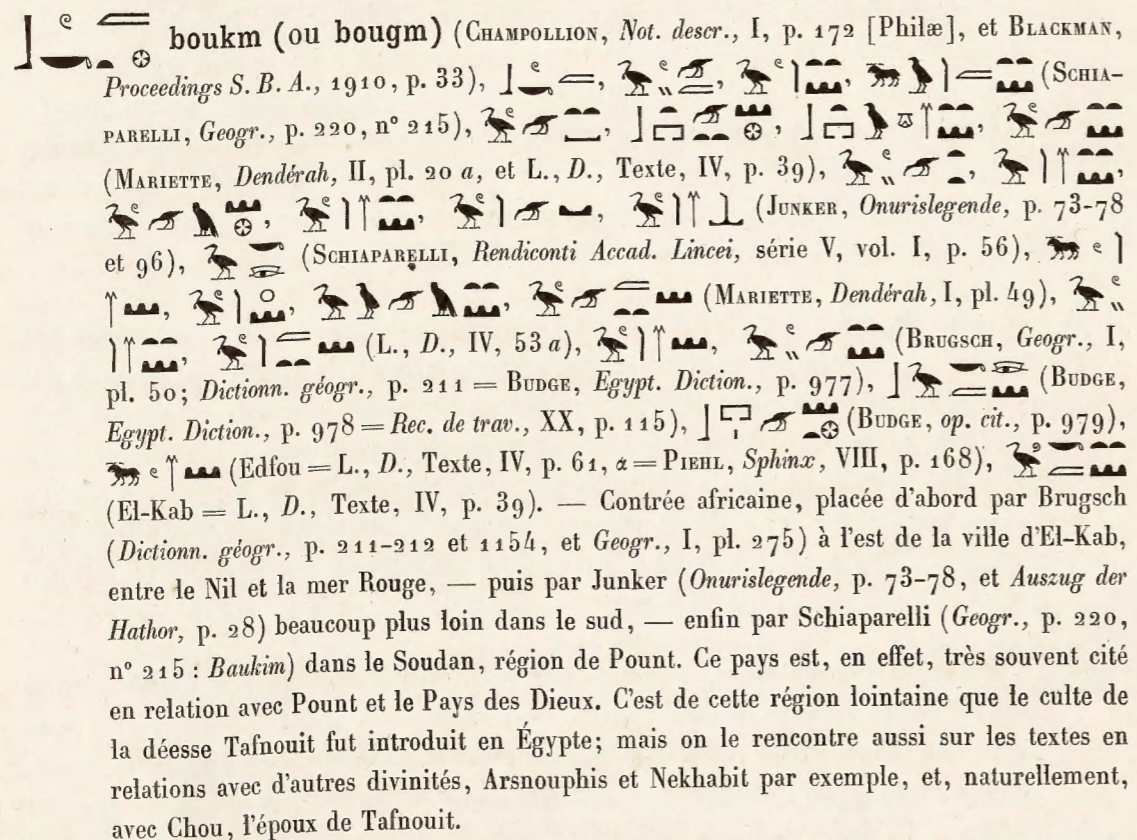 boukm (ou bougm) (CHAMPOLLION, Not. descr., I, p. 172 [Philæ], et BLACKMAN,
Proceedings S. B. A., 1910, p. 33), , , , (SCHIA-
PARELLI, Geogr., p. 220, n° 215), , , ,
(MARIETTE, Dendérah, II, pl. 20 a, et L., D., Texte, IV, p. 39), , ,
, , , (JUNKER, Onurislegende, p. 73-78
et 96), (SCHIAPARELLI, Rendiconti Accad. Lincei, série V, vol. I, p. 56),
, , , (MARIETTE, Dendérah, I, pl. 49),
, (L., D., IV, 53 a), , (BRUGSCH, Geogr., I,
pl. 50; Dictionn. géogr., p. 211 = BUDGE, Egypt. Diction., p. 977), (BUDGE,
Egypt. Diction., p. 978 = Rec. de trav., XX, p. 115), (BUDGE, op. cit., p. 979),
(Edfou = L., D., Texte, IV, p. 61, α = PIEHL, Sphinx, VIII, p. 168),
(El-Kab = L., D., Texte, IV, p. 39). — Contrée africaine, placée d'abord par Brugsch
(Dictionn. géogr., p. 211-212 et 1154, et Geogr., I, pl. 275) à l'est de la ville d'El-Kab,
entre le Nil et la mer Rouge, — puis par Junker (Onurislegende, p. 73-78, et Auszug der
Hathor, p. 28) beaucoup plus loin dans le sud, — enfin par Schiaparelli (Geogr., p. 220,
n° 215 : Baukim) dans le Soudan, région de Pount. Ce pays est, en effet, très souvent cité
en relation avec Pount et le Pays des Dieux. C'est de cette région lointaine que le culte de
la déesse Tafnouit fut introduit en Égypte; mais on le rencontre aussi sur les textes en
relations avec d'autres divinités, Arsnouphis et Nekhabit par exemple, et, naturellement,
avec Chou, l'époux de Tafnouit.